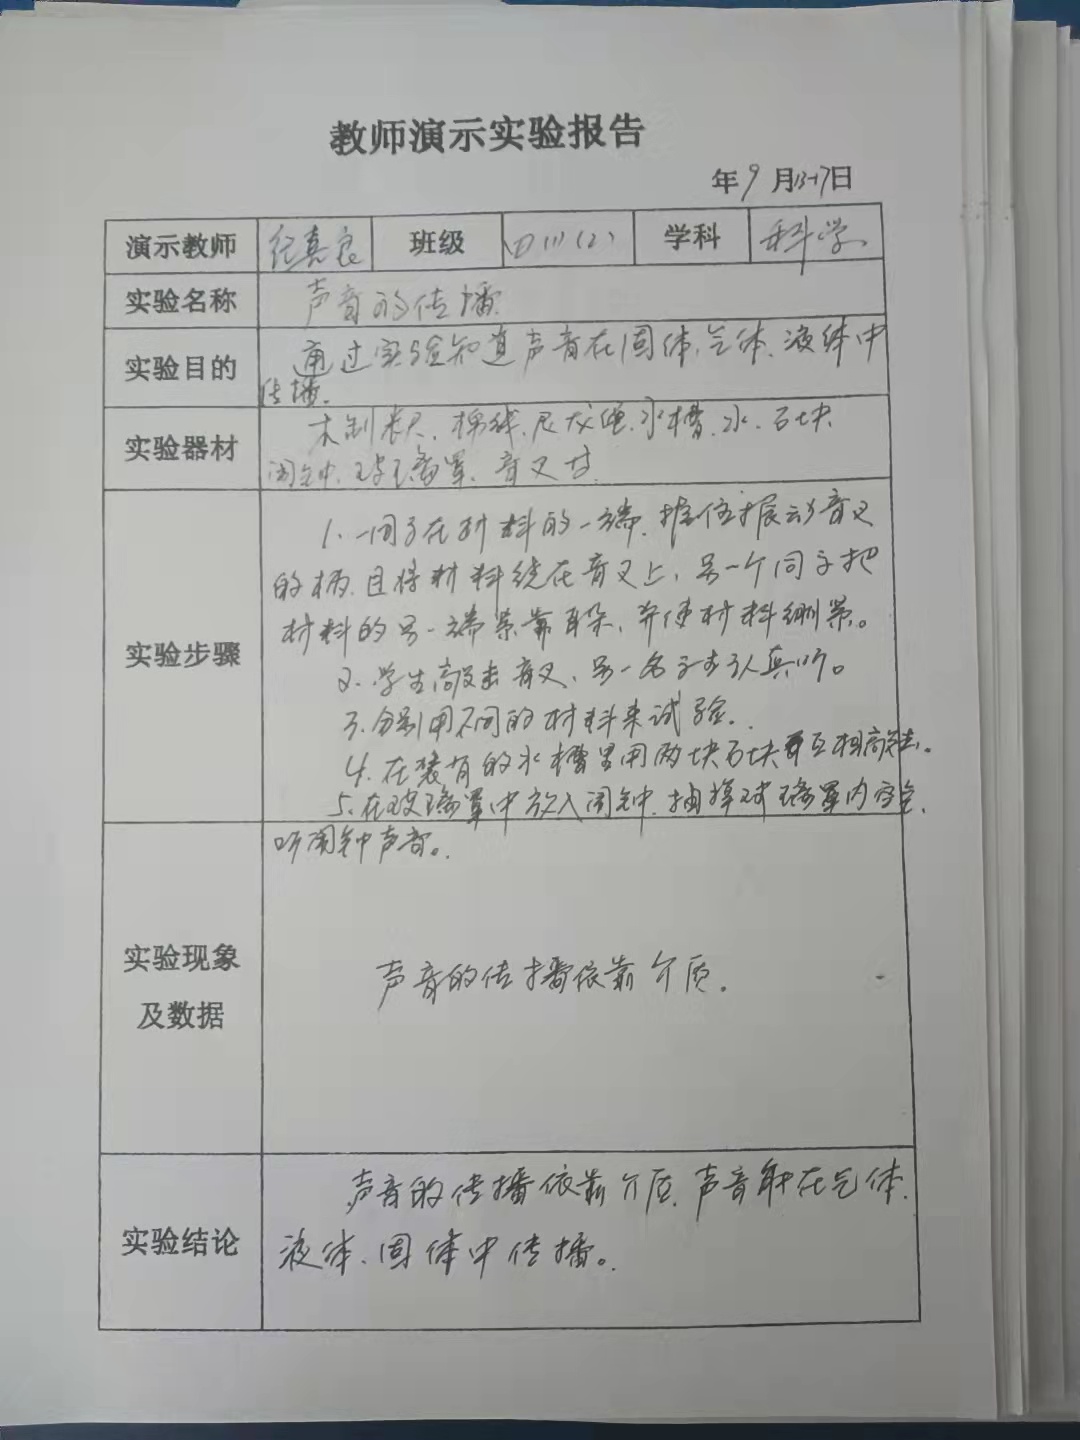 教师演示实验报告
年9月13-17日
演示教师 纪真良 班级 四(1)(2) 学科 科学
实验名称 声音的传播
实验目的 通过实验知道声音在固体、气体、液体中
传播。
实验器材 木制米尺、棉线、尼龙绳、水槽、水、石块
闹钟、玻璃罩、音叉等
实验步骤
1、一同学在材料的一端,握住振动音叉
的柄,且将材料绕在音叉上,另一个同学把
材料的另一端紧靠耳朵,并使材料绷紧。
2、学生敲击音叉,另一名学生认真听。
3、分别用不同的材料来试验.
4、在装有的水槽里用两块石块互相敲击。
5、在玻璃罩中放入闹钟,抽掉玻璃罩内空气,
听闹钟声音。
实验现象
及数据
声音的传播依靠介质.
实验结论
声音的传播依靠介质,声音能在气体、
液体、固体中传播。